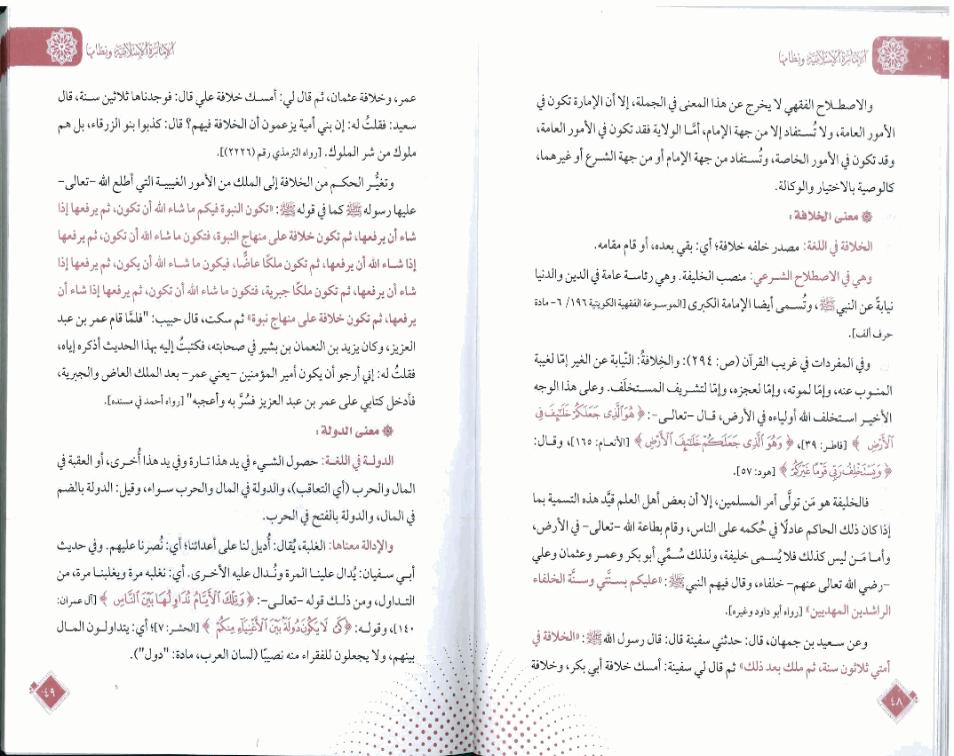 الإمارة الإسلامية ونظامها
والاصطلاح الفقهي لا يخرج عن هذا المعنى في الجملة، إلا أن الإمارة تكون في
الأمور العامة، ولا تُستفاد إلا من جهة الإمام، أمَّا الولاية فقد تكون في الأمور العامة،
وقد تكون في الأمور الخاصة، وتُستفاد من جهة الإمام أو من جهة الشرع أو غيرهما،
كالوصية بالاختيار والوكالة.
معنى الخلافة:
الخلافة في اللغة: مصدر خلفه خلافة؛ أي: بقي بعده، أو قام مقامه.
وهي في الاصطلاح الشرعي: منصب الخليفة. وهي رئاسة عامة في الدين والدنيا
نيابةً عن النبي ﷺ، وتُسمى أيضا الإمامة الكبرى [الموسوعة الفقهية الكويتية ١٩٦/ ٦- مادة
حرف ألف].
وفي المفردات في غريب القرآن (ص: ٢٩٤): والخِلافةُ: النّيابة عن الغير إمّا لغيبة
المنوب عنه، وإمّا لموته، وإمّا لعجزه، وإمّا لتشريف المستخلَف. وعلى هذا الوجه
الأخير استخلف الله أولياءه في الأرض، قال -تعالى-: ﴿هُوَ ٱلَّذِى جَعَلَكُمْ خَلَٰٓئِفَ فِى
ٱلْأَرْضِ﴾ [فاطر: ٣٩]، ﴿وَهُوَ ٱلَّذِى جَعَلَكُمْ خَلَٰٓئِفَ ٱلْأَرْضِ﴾ [الأنعام: ١٦٥]، وقال:
﴿وَيَسْتَخْلِفُ رَبِّى قَوْمًا غَيْرَكُمْ﴾ [هود: ٥٧].
فالخليفة هو مَن تولَّى أمر المسلمين، إلا أن بعض أهل العلم قيَّد هذه التسمية بما
إذا كان ذلك الحاكم عادلًا في حُكمه على الناس، وقام بطاعة الله -تعالى- في الأرض،
وأما مَن ليس كذلك فلا يُسمى خليفة، ولذلك سُمِّي أبو بكر وعمر وعثمان وعلي
-رضي الله تعالى عنهم- خلفاء، وقال فيهم النبي ﷺ: «عليكم بسنَّتي وسنَّة الخلفاء
الراشدين المهديين» [رواه أبو داود وغيره].
وعن سعيد بن جمهان، قال: حدثني سفينة قال: قال رسول الله ﷺ: «الخلافة في
أمتي ثلاثون سنة، ثم ملك بعد ذلك» ثم قال لي سفينة: أمسك خلافة أبي بكر، وخلافة
٤٨
الإمارة الإسلامية ونظامها
عمر، وخلافة عثمان، ثم قال لي: أمسك خلافة علي قال: فوجدناها ثلاثين سنة، قال
سعيد: فقلتُ له: إن بني أمية يزعمون أن الخلافة فيهم؟ قال: كذبوا بنو الزرقاء، بل هم
ملوك من شر الملوك. [رواه الترمذي رقم (٢٢٢٦)].
وتغيُّر الحكم من الخلافة إلى الملك من الأمور الغيبية التي أطلع الله -تعالى-
عليها رسوله ﷺ كما في قوله ﷺ: «تكون النبوة فيكم ما شاء الله أن تكون، ثم يرفعها إذا
شاء أن يرفعها، ثم تكون خلافة على منهاج النبوة، فتكون ما شاء الله أن تكون، ثم يرفعها
إذا شاء الله أن يرفعها، ثم تكون ملكًا عاضًّا، فيكون ما شاء الله أن يكون، ثم يرفعها إذا
شاء أن يرفعها، ثم تكون ملكًا جبرية، فتكون ما شاء الله أن تكون، ثم يرفعها إذا شاء أن
يرفعها، ثم تكون خلافة على منهاج نبوة» ثم سكت، قال حبيب: "فلمَّا قام عمر بن عبد
العزيز، وكان يزيد بن النعمان بن بشير في صحابته، فكتبتُ إليه بهذا الحديث أذكره إياه،
فقلتُ له: إني أرجو أن يكون أمير المؤمنين -يعني عمر- بعد الملك العاض والجبرية،
فأدخل كتابي على عمر بن عبد العزيز فسُرَّ به وأعجبه" [رواه أحمد في مسنده].
معنى الدولة:
الدولة في اللغة: حصول الشيء في يد هذا تارة وفي يد هذا أُخرى، أو العقبة في
المال والحرب (أي التعاقب)، والدولة في المال والحرب سواء، وقيل: الدولة بالضم
في المال، والدولة بالفتح في الحرب.
والإدالة معناها: الغلبة، يُقال: أُديل لنا على أعدائنا؛ أي: نُصرنا عليهم. وفي حديث
أبي سفيان: يُدال علينا المرة ونُدال عليه الأخرى. أي: نغلبه مرة ويغلبنا مرة، من
التداول، ومن ذلك قوله -تعالى-: ﴿وَتِلْكَ ٱلْأَيَّامُ نُدَاوِلُهَا بَيْنَ ٱلنَّاسِ﴾ [آل عمران:
١٤٠]، وقوله: ﴿كَىْ لَا يَكُونَ دُولَةًۢ بَيْنَ ٱلْأَغْنِيَآءِ مِنكُمْ﴾ [الحشر: ٧]؛ أي: يتداولون المال
بينهم، ولا يجعلون للفقراء منه نصيبًا (لسان العرب، مادة: "دول").
٤٩